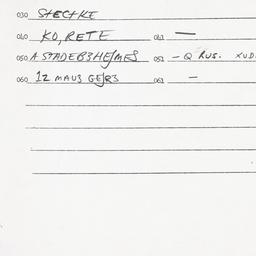 030 STECHKE
040 KO, RETE 041 —
050 A STADEB3HEJMES 051 – Q RUS. XUD
060 12 MAUS GEJRS 061 —